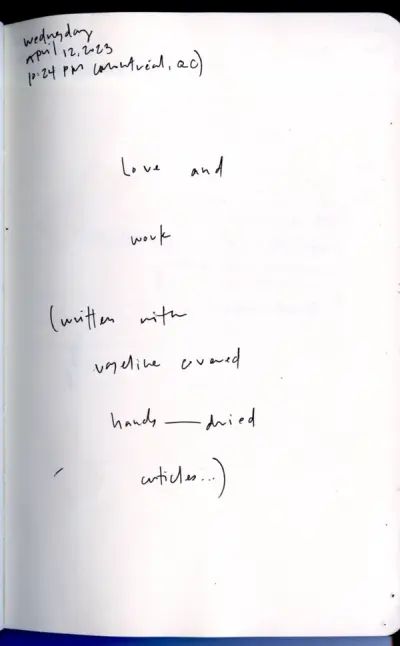 wednesday
April 12, 2023
10:24 PM (montréal, QC)
Love and
work
(written with
vaseline covered
hands — dried
cuticles...)